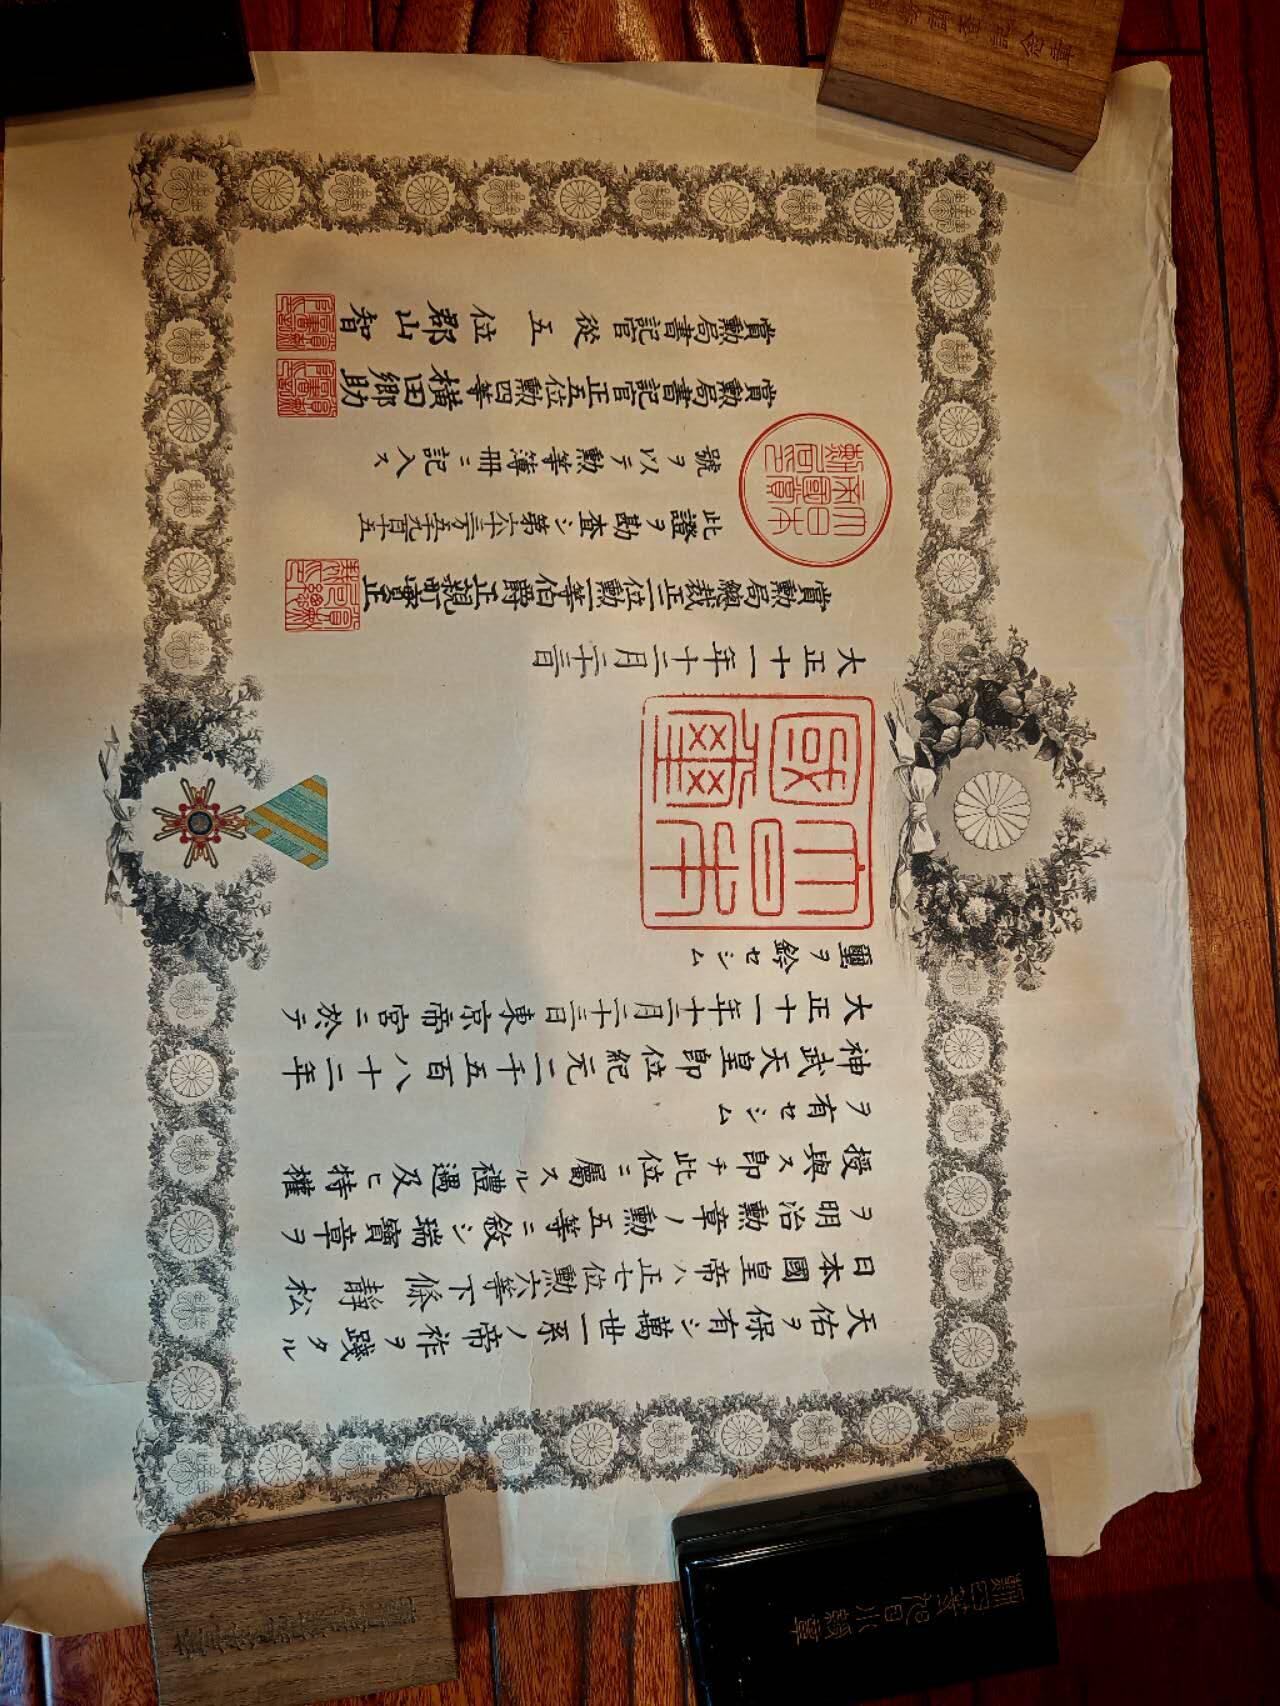 天佑ヲ保有シ萬世一系ノ帝祚ヲ踐タル
日本國皇帝ハ正七位勳六等下條靜松
ヲ明治勳章ノ勳五等ニ敘シ瑞寶章ヲ
授與ス卽チ此位ニ屬スル禮遇及ヒ特權
ヲ有セシム
神武天皇卽位紀元二千五百八十二年
大正十一年十二月二十三日東京帝宮ニ於テ
璽ヲ鈐セシム
大日本國璽
大正十一年十二月二十三日
賞勳局總裁正二位勳一等伯爵正親町實正
此證ヲ勘査シ第六十三万五千九百十五
號ヲ以テ勳等簿冊ニ記入ス
大日本帝國賞勳局印
賞勳局書記官正五位勳四等橫田鄉助
賞勳局書記官從五位郡山智
勳四等旭日小綬章